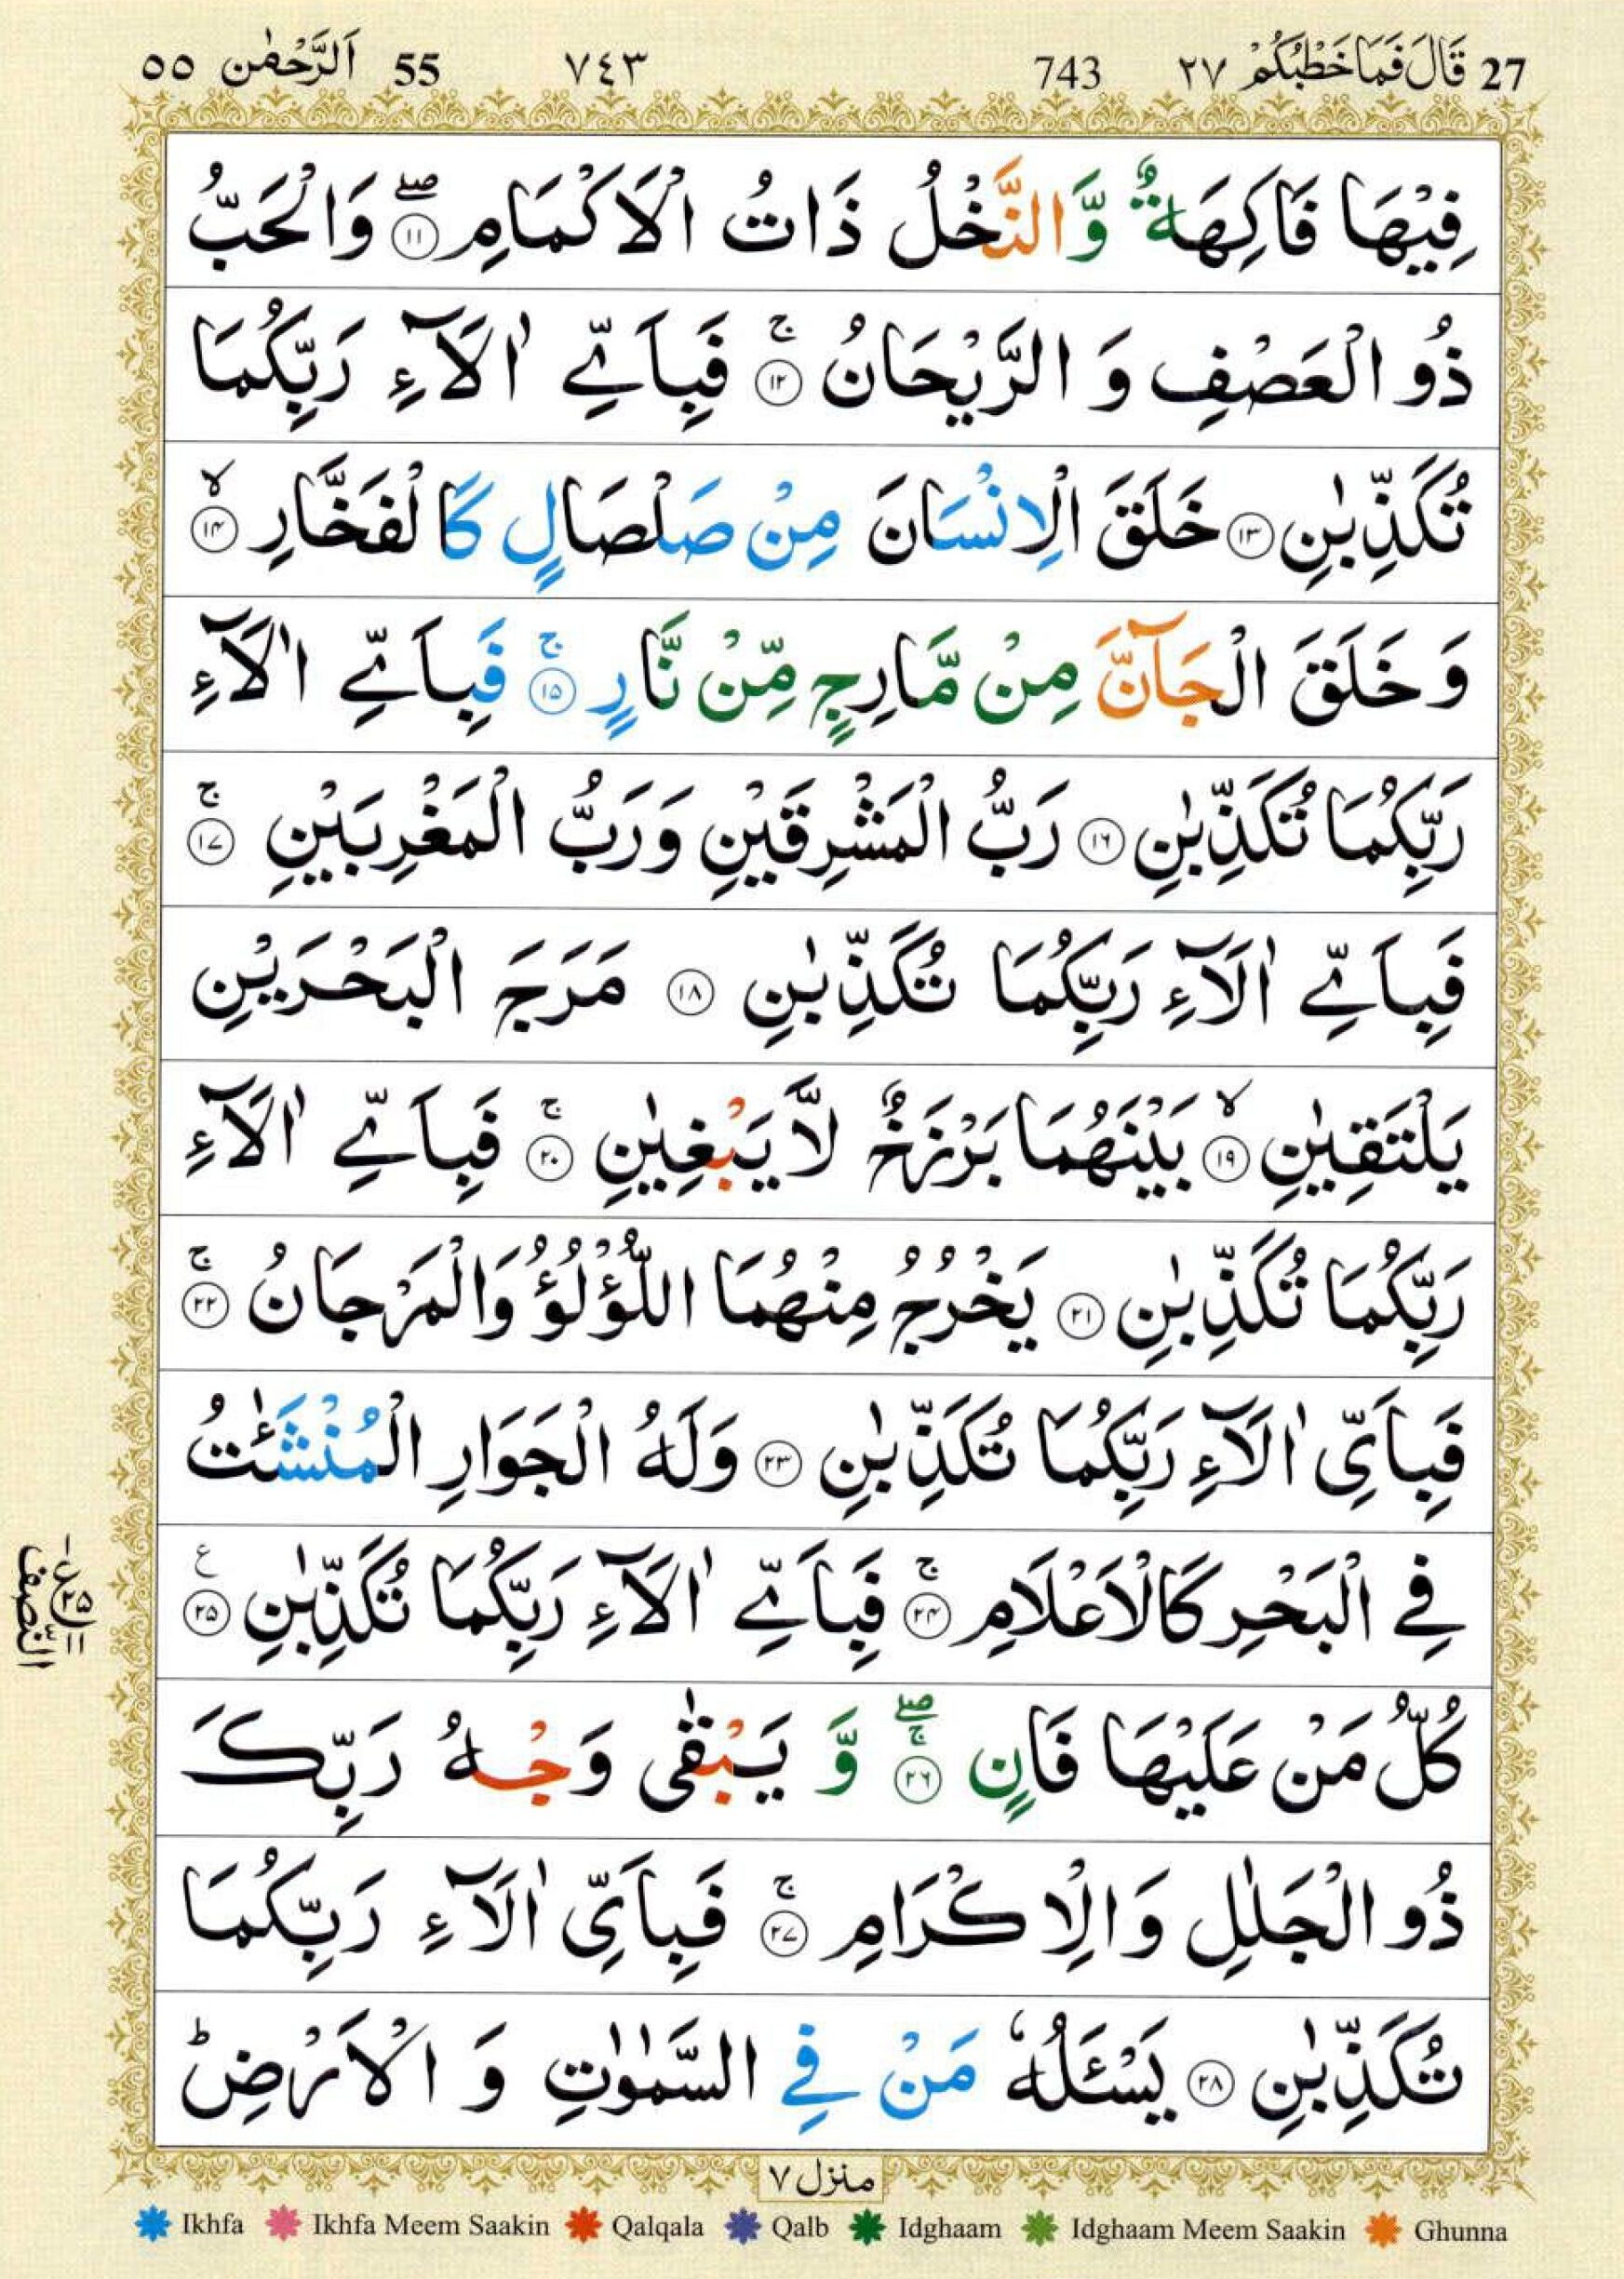 27 قَالَ فَمَا خَطْبُكُمْ ٢٧ 743 ٧٤٣ 55 اَلرَّحْمٰن ٥٥
فِيْهَا فَاكِهَةٌ وَّالنَّخْلُ ذَاتُ الْاَكْمَامِ ۖ ١١ وَالْحَبُّ
ذُو الْعَصْفِ وَ الرَّيْحَانُ ۚ ١٢ فَبِاَيِّ اٰلَآءِ رَبِّكُمَا
تُكَذِّبٰنِ ١٣ خَلَقَ الْاِنْسَانَ مِنْ صَلْصَالٍ كَالْفَخَّارِ ۙ ١٤
وَ خَلَقَ الْجَآنَّ مِنْ مَّارِجٍ مِّنْ نَّارٍ ۚ ١٥ فَبِاَيِّ اٰلَآءِ
رَبِّكُمَا تُكَذِّبٰنِ ١٦ رَبُّ الْمَشْرِقَيْنِ وَرَبُّ الْمَغْرِبَيْنِ ۚ ١٧
فَبِاَيِّ اٰلَآءِ رَبِّكُمَا تُكَذِّبٰنِ ١٨ مَرَجَ الْبَحْرَيْنِ
يَلْتَقِيٰنِ ۙ ١٩ بَيْنَهُمَا بَرْزَخٌ لَّا يَبْغِيٰنِ ۚ ٢٠ فَبِاَيِّ اٰلَآءِ
رَبِّكُمَا تُكَذِّبٰنِ ٢١ يَخْرُجُ مِنْهُمَا اللُّؤْلُؤُ وَالْمَرْجَانُ ۚ ٢٢
فَبِاَيِّ اٰلَآءِ رَبِّكُمَا تُكَذِّبٰنِ ٢٣ وَلَهُ الْجَوَارِ الْمُنْشَئٰتُ
فِي الْبَحْرِ كَالْاَعْلَامِ ۚ ٢٤ فَبِاَيِّ اٰلَآءِ رَبِّكُمَا تُكَذِّبٰنِ ٢٥ ع
النصف
كُلُّ مَنْ عَلَيْهَا فَانٍ ۚۖ ٢٦ وَّ يَبْقٰى وَجْهُ رَبِّكَ
ذُو الْجَلٰلِ وَالْاِكْرَامِ ۚ ٢٧ فَبِاَيِّ اٰلَآءِ رَبِّكُمَا
تُكَذِّبٰنِ ٢٨ يَسْئَلُهٗ مَنْ فِي السَّمٰوٰتِ وَ الْاَرْضِ ؕ
منزل ٧
Ikhfa Ikhfa Meem Saakin Qalqala Qalb Idghaam Idghaam Meem Saakin Ghunna